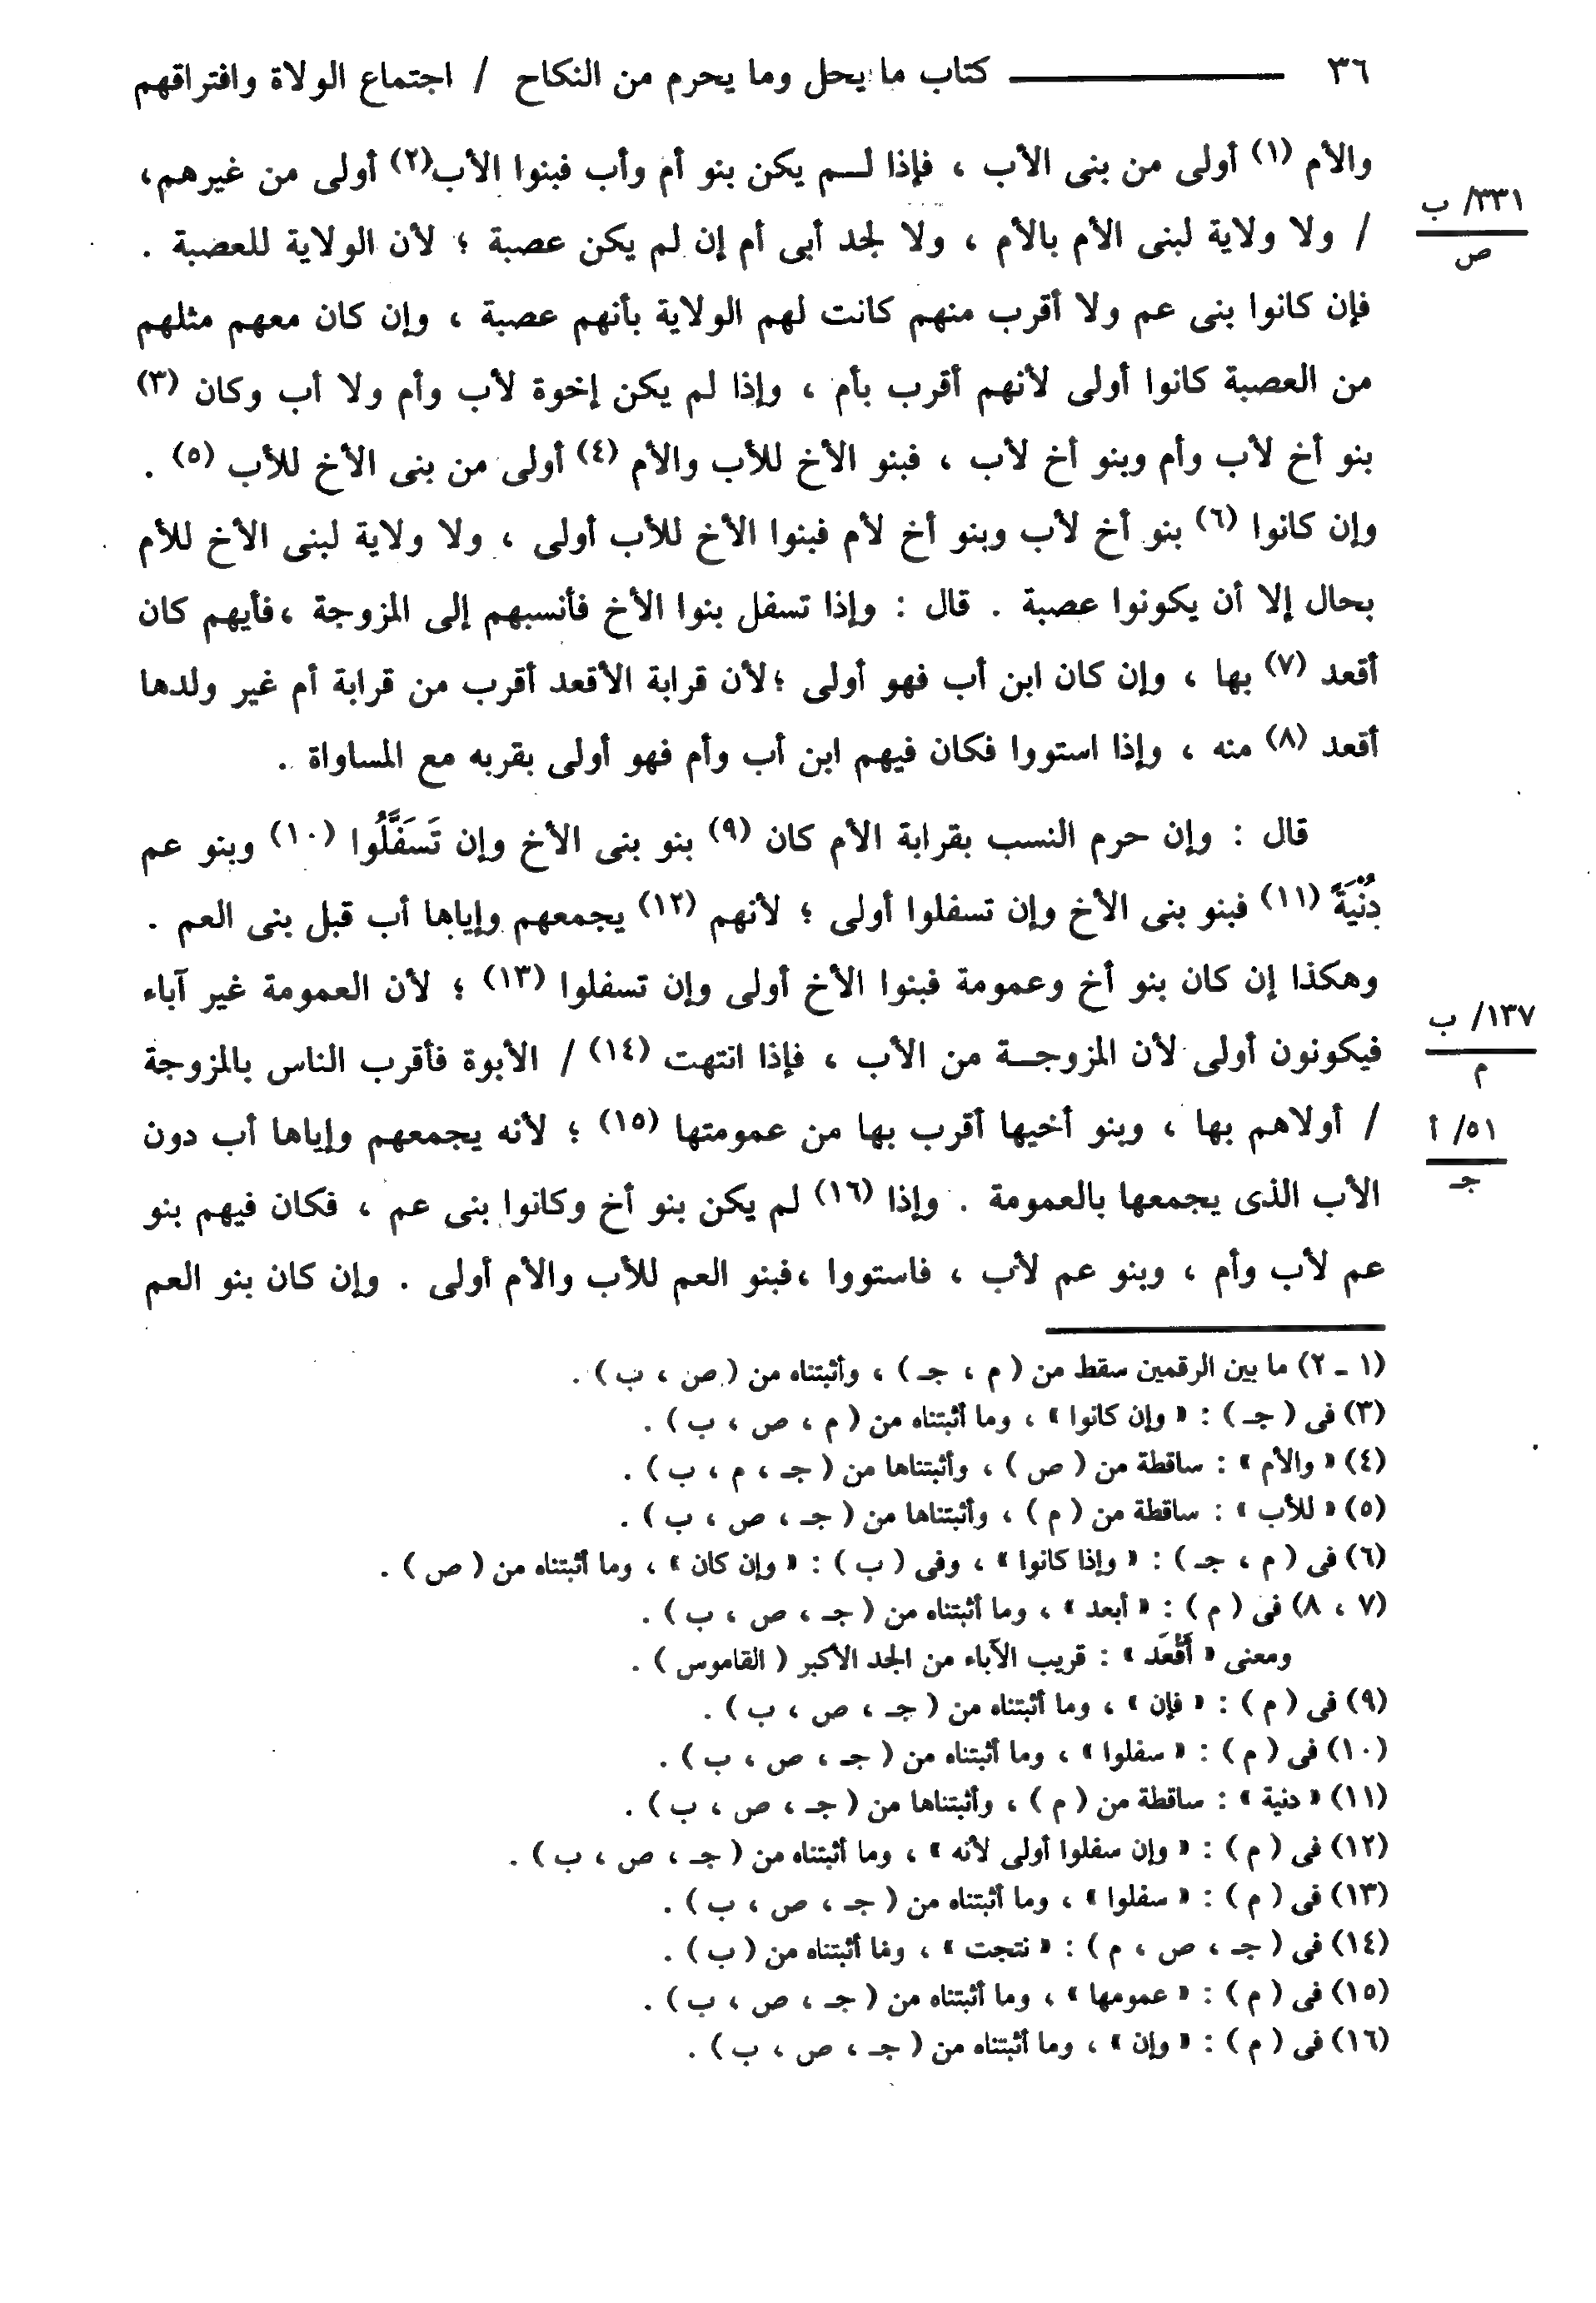 ٣٦ ــــــــــ كتاب ما يحل وما يحرم من النكاح / اجتماع الولاة وافتراقهم
والأم (١) أولى من بنى الأب ، فإذا لـــم يكن بنو أم وأب فبنوا الأب(٢) أولى من غيرهم،
٣٣١/ ب
ص
/ ولا ولاية لبنى الأم بالأم ، ولا لجد أبى أم إن لم يكن عصبة ؛ لأن الولاية للعصبة .
فإن كانوا بنى عم ولا أقرب منهم كانت لهم الولاية بأنهم عصبة ، وإن كان معهم مثلهم
من العصبة كانوا أولى لأنهم أقرب بأم ، وإذا لم يكن إخوة لأب وأم ولا أب وكان (٣)
بنو أخ لأب وأم وبنو أخ لأب ، فبنو الأخ للأب والأم (٤) أولى من بنى الأخ للأب (٥) .
وإن كانوا (٦) بنو أخ لأب وبنو أخ لأم فبنوا الأخ للأب أولى ، ولا ولاية لبنى الأخ للأم
بحال إلا أن يكونوا عصبة . قال : وإذا تسفل بنوا الأخ فأنسبهم إلى المزوجة ،فأيهم كان
أقعد (٧) بها ، وإن كان ابن أب فهو أولى ؛لأن قرابة الأقعد أقرب من قرابة أم غير ولدها
أقعد (٨) منه ، وإذا استووا فكان فيهم ابن أب وأم فهو أولى بقربه مع المساواة .
قال : وإن حرم النسب بقرابة الأم كان (٩) بنو بنى الأخ وإن تَسَفَّلُوا (١٠) وبنو عم
دِنْيَةً (١١) فبنو بنى الأخ وإن تسفلوا أولى ؛ لأنهم (١٢) يجمعهم وإياها أب قبل بنى العم .
وهكذا إن كان بنو أخ وعمومة فبنوا الأخ أولى وإن تسفلوا (١٣) ؛ لأن العمومة غير آباء
١٣٧/ ب
م
فيكونون أولى لأن المزوجـــة من الأب ، فإذا انتهت (١٤) / الأبوة فأقرب الناس بالمزوجة
٥١/ أ
جـ
/ أولاهم بها ، وبنو أخيها أقرب بها من عمومتها (١٥) ؛ لأنه يجمعهم وإياها أب دون
الأب الذى يجمعها بالعمومة . وإذا (١٦) لم يكن بنو أخ وكانوا بنى عم ، فكان فيهم بنو
عم لأب وأم ، وبنو عم لأب ، فاستووا ،فبنو العم للأب والأم أولى . وإن كان بنو العم
(١ ـ ٢) ما بين الرقمين سقط من ( م ، جـ ) ، وأثبتناه من ( ص ، ب ) .
(٣) فى ( جـ ) : « وإن كانوا » ، وما أثبتناه من ( م ، ص ، ب ) .
(٤) « والأم » : ساقطة من ( ص ) ، وأثبتناها من ( جـ ، م ، ب ) .
(٥) « للأب » : ساقطة من ( م ) ، وأثبتناها من ( جـ ، ص ، ب ) .
(٦) فى ( م ، جـ ) : « وإذا كانوا » ، وفى ( ب ) : « وإن كان » ، وما أثبتناه من ( ص ) .
(٧ ، ٨) فى ( م ) : « أبعد » ، وما أثبتناه من ( جـ ، ص ، ب ) .
ومعنى « أَقْعَد » : قريب الآباء من الجد الأكبر ( القاموس ) .
(٩) فى ( م ) : « فإن » ، وما أثبتناه من ( جـ ، ص ، ب ) .
(١٠) فى ( م ) : « سفلوا » ، وما أثبتناه من ( جـ ، ص ، ب ) .
(١١) « دنية » : ساقطة من ( م ) ، وأثبتناها من ( جـ ، ص ، ب ) .
(١٢) فى ( م ) : « وإن سفلوا أولى لأنه » ، وما أثبتناه من ( جـ ، ص ، ب ) .
(١٣) فى ( م ) : « سفلوا » ، وما أثبتناه من ( جـ ، ص ، ب ) .
(١٤) فى ( جـ ، ص ، م ) : « نتجت » ، وما أثبتناه من ( ب ) .
(١٥) فى ( م ) : « عمومها » ، وما أثبتناه من ( جـ ، ص ، ب ) .
(١٦) فى ( م ) : « وإن » ، وما أثبتناه من ( جـ ، ص ، ب ) .